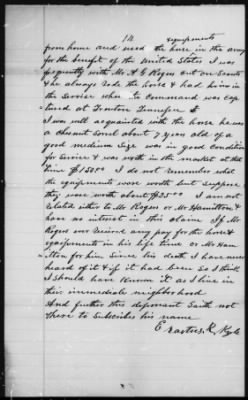 14 equipments
from home and used the horse in the army
for the benefit of the United States I was
frequently with Mr. A G Rogers out on Scouts
& he always rode the horse & had him in
the Service when to Command was cap
tured at Trenton Tennessee &
I was well acquainted with the horse he was
a chesnut Sorrel about 7 year old of a
good medium size was in good Condition
for Service & was worth in the market at this
time $150.00 I do not remember what
the equipments were worth but suppose
they were worth about $25.00 I am not
related either to Mr Rogers or Mr Hamilton &
have no intrest in this claim If Mr
Rogers ever received any pay for the horse &
equipments in his life time or Mr Ham
ilton for him Since his death I have never
heard of it & if it had been so I think
I should have Known it as I live in
their immediate neighborhood
And further this deponent Saith not
there to Subscribes his name
Erastus R.